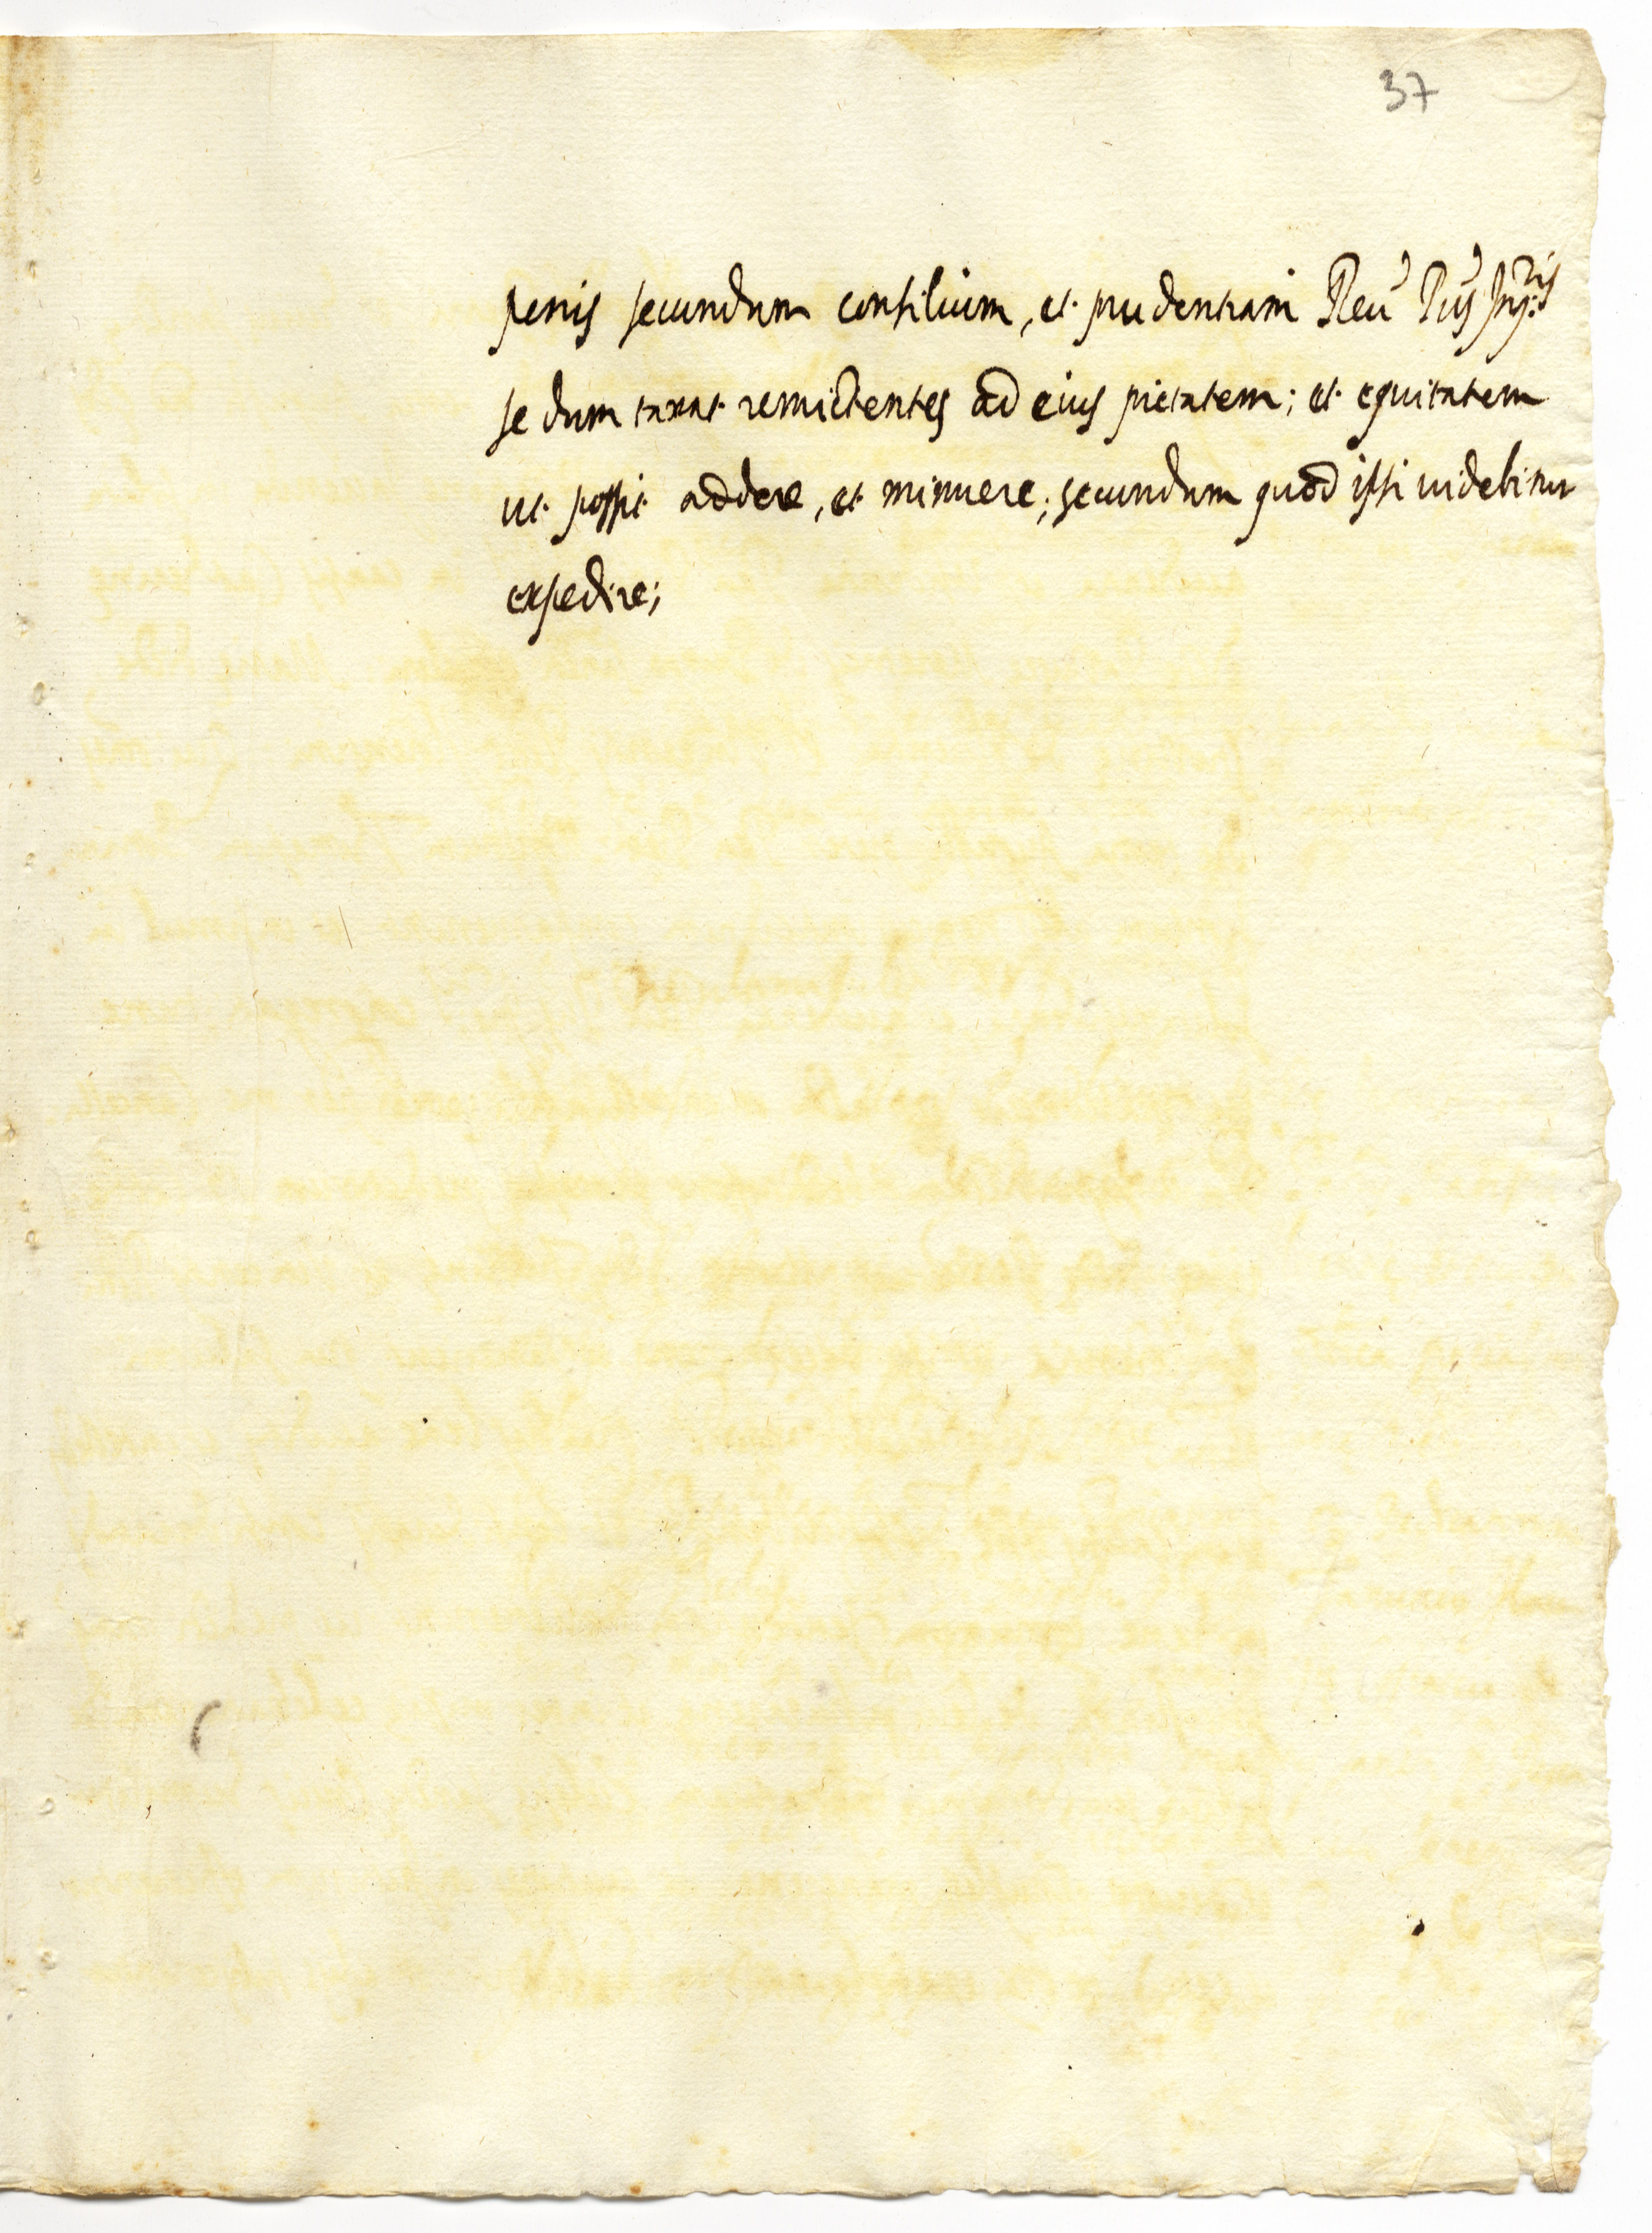 37
penis secundum consilium, et prudentiam Reu Pris Inq:ris
se dum taxat remictentes ad eius pietatem; et equitatem
ut possit addere, et minuere; secundum quod ipsi uidebitur
expedire;